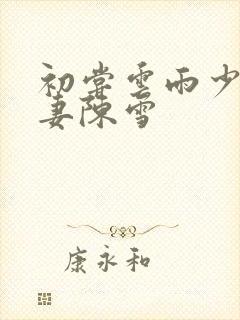 初尝雲雨少
妻陳雪
康永和